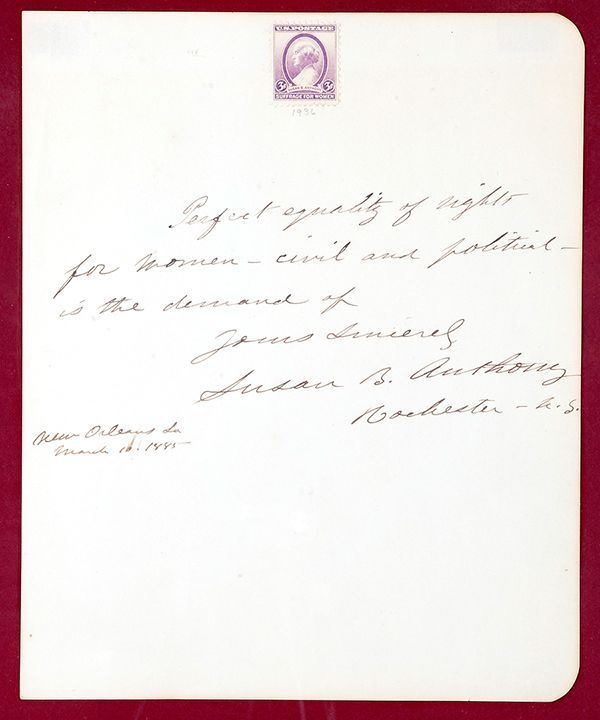 U.S. POSTAGE
3¢ 3¢
SUSAN B. ANTHONY
SUFFRAGE FOR WOMEN
1936
Perfect equality of rights
for women – civil and political –
is the demand of
Yours Sincerely
Susan B. Anthony
Rochester – N.Y.
New Orleans La
March 10. 1885